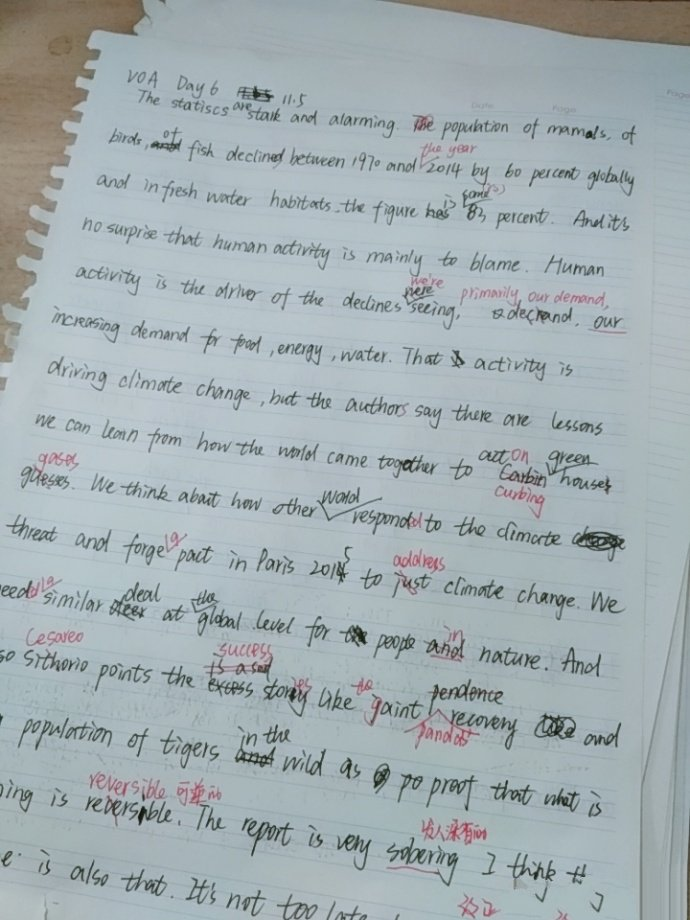 Date Page
Page
VOA Day 6 11.5
The statiscs are stark and alarming. The population of mamals, of
birds, of fish declined between 1970 and the year 2014 by 60 percent globally
and in fresh water habitats. the figure is some 83 percent. And it's
no surprise that human activity is mainly to blame. Human
we're primarily, our demand,
activity is the driver of the declines were seeing, decrand, our
increasing demand for food, energy, water. That activity is
driving climate change, but the authors say there are lessons
we can learn from how the world came together to act on green
Carbin houses
gases curbing
We think about how other world responded to the climate
threat and forge a pact in Paris 2015 to just climate change. We
address
eed a similar deal at the global level for people and nature. And
in
Cesareo success
so Sithorio points the story like the gaint pendence recovery and
ies pandas
population of tigers in the wild as po proof that what is
reversible
ing is reversible. The report is very sobering I think
发人深省的
is also that. It's not too late